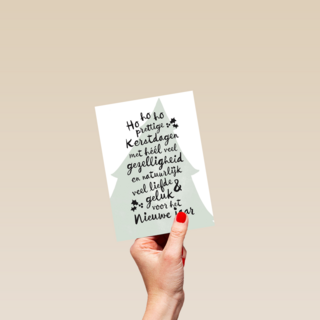 Ho ho ho
prettige
Kerstdagen
met héél veel
gezelligheid
en natuurlijk
veel liefde &
geluk
voor het
Nieuwe jaar